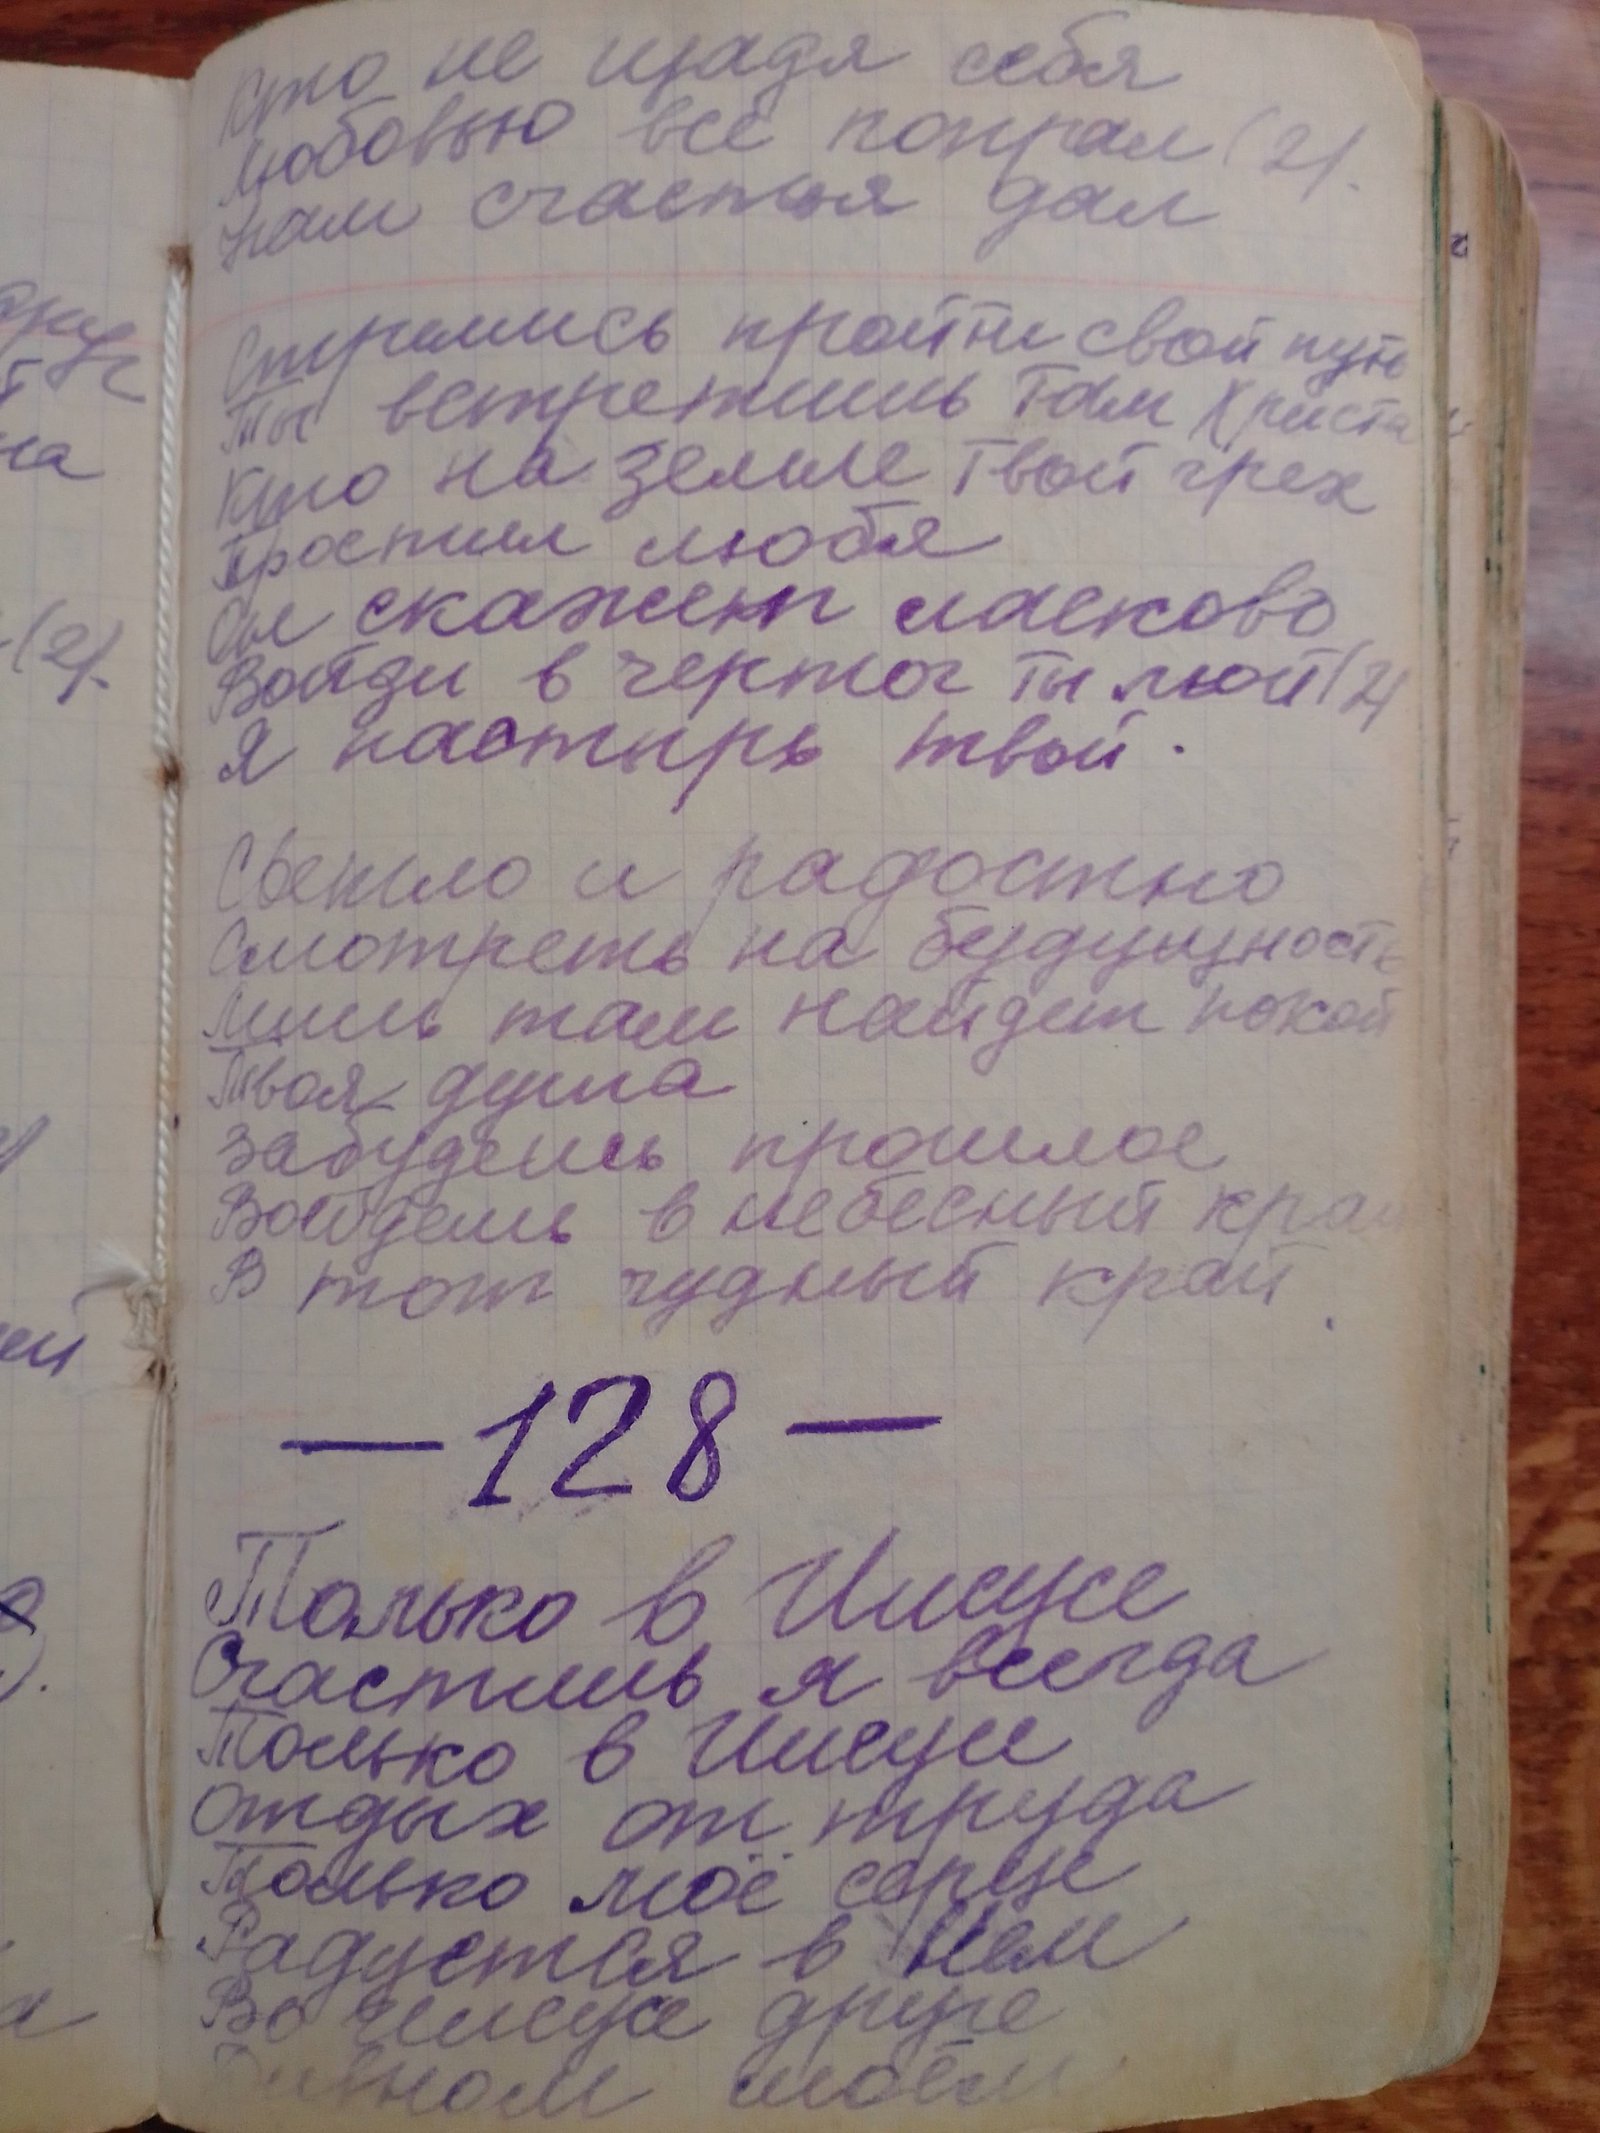 Кто не щадя себя
Любовью всё попрал (2).
Нам счастья дал
Стремись пройти свой путь
Ты встретишь Там Христа
Кто на земле Твой грех
Простил любя
Он скажет ласково
Войди в чертог ты мой (2)
Я пастырь твой.
Светло и радостно
Смотреть на будущность
Лишь там найдет покой
Твоя душа
Забудешь прошлое
Войдешь в небесный край
В тот чудный край.
— 128 —
Только в Иисусе
Счастлив я всегда
Только в Иисусе
Отдых от труда
Только моё сердце
Радуется в Нём
Во Иисусе друге
Дивном моём